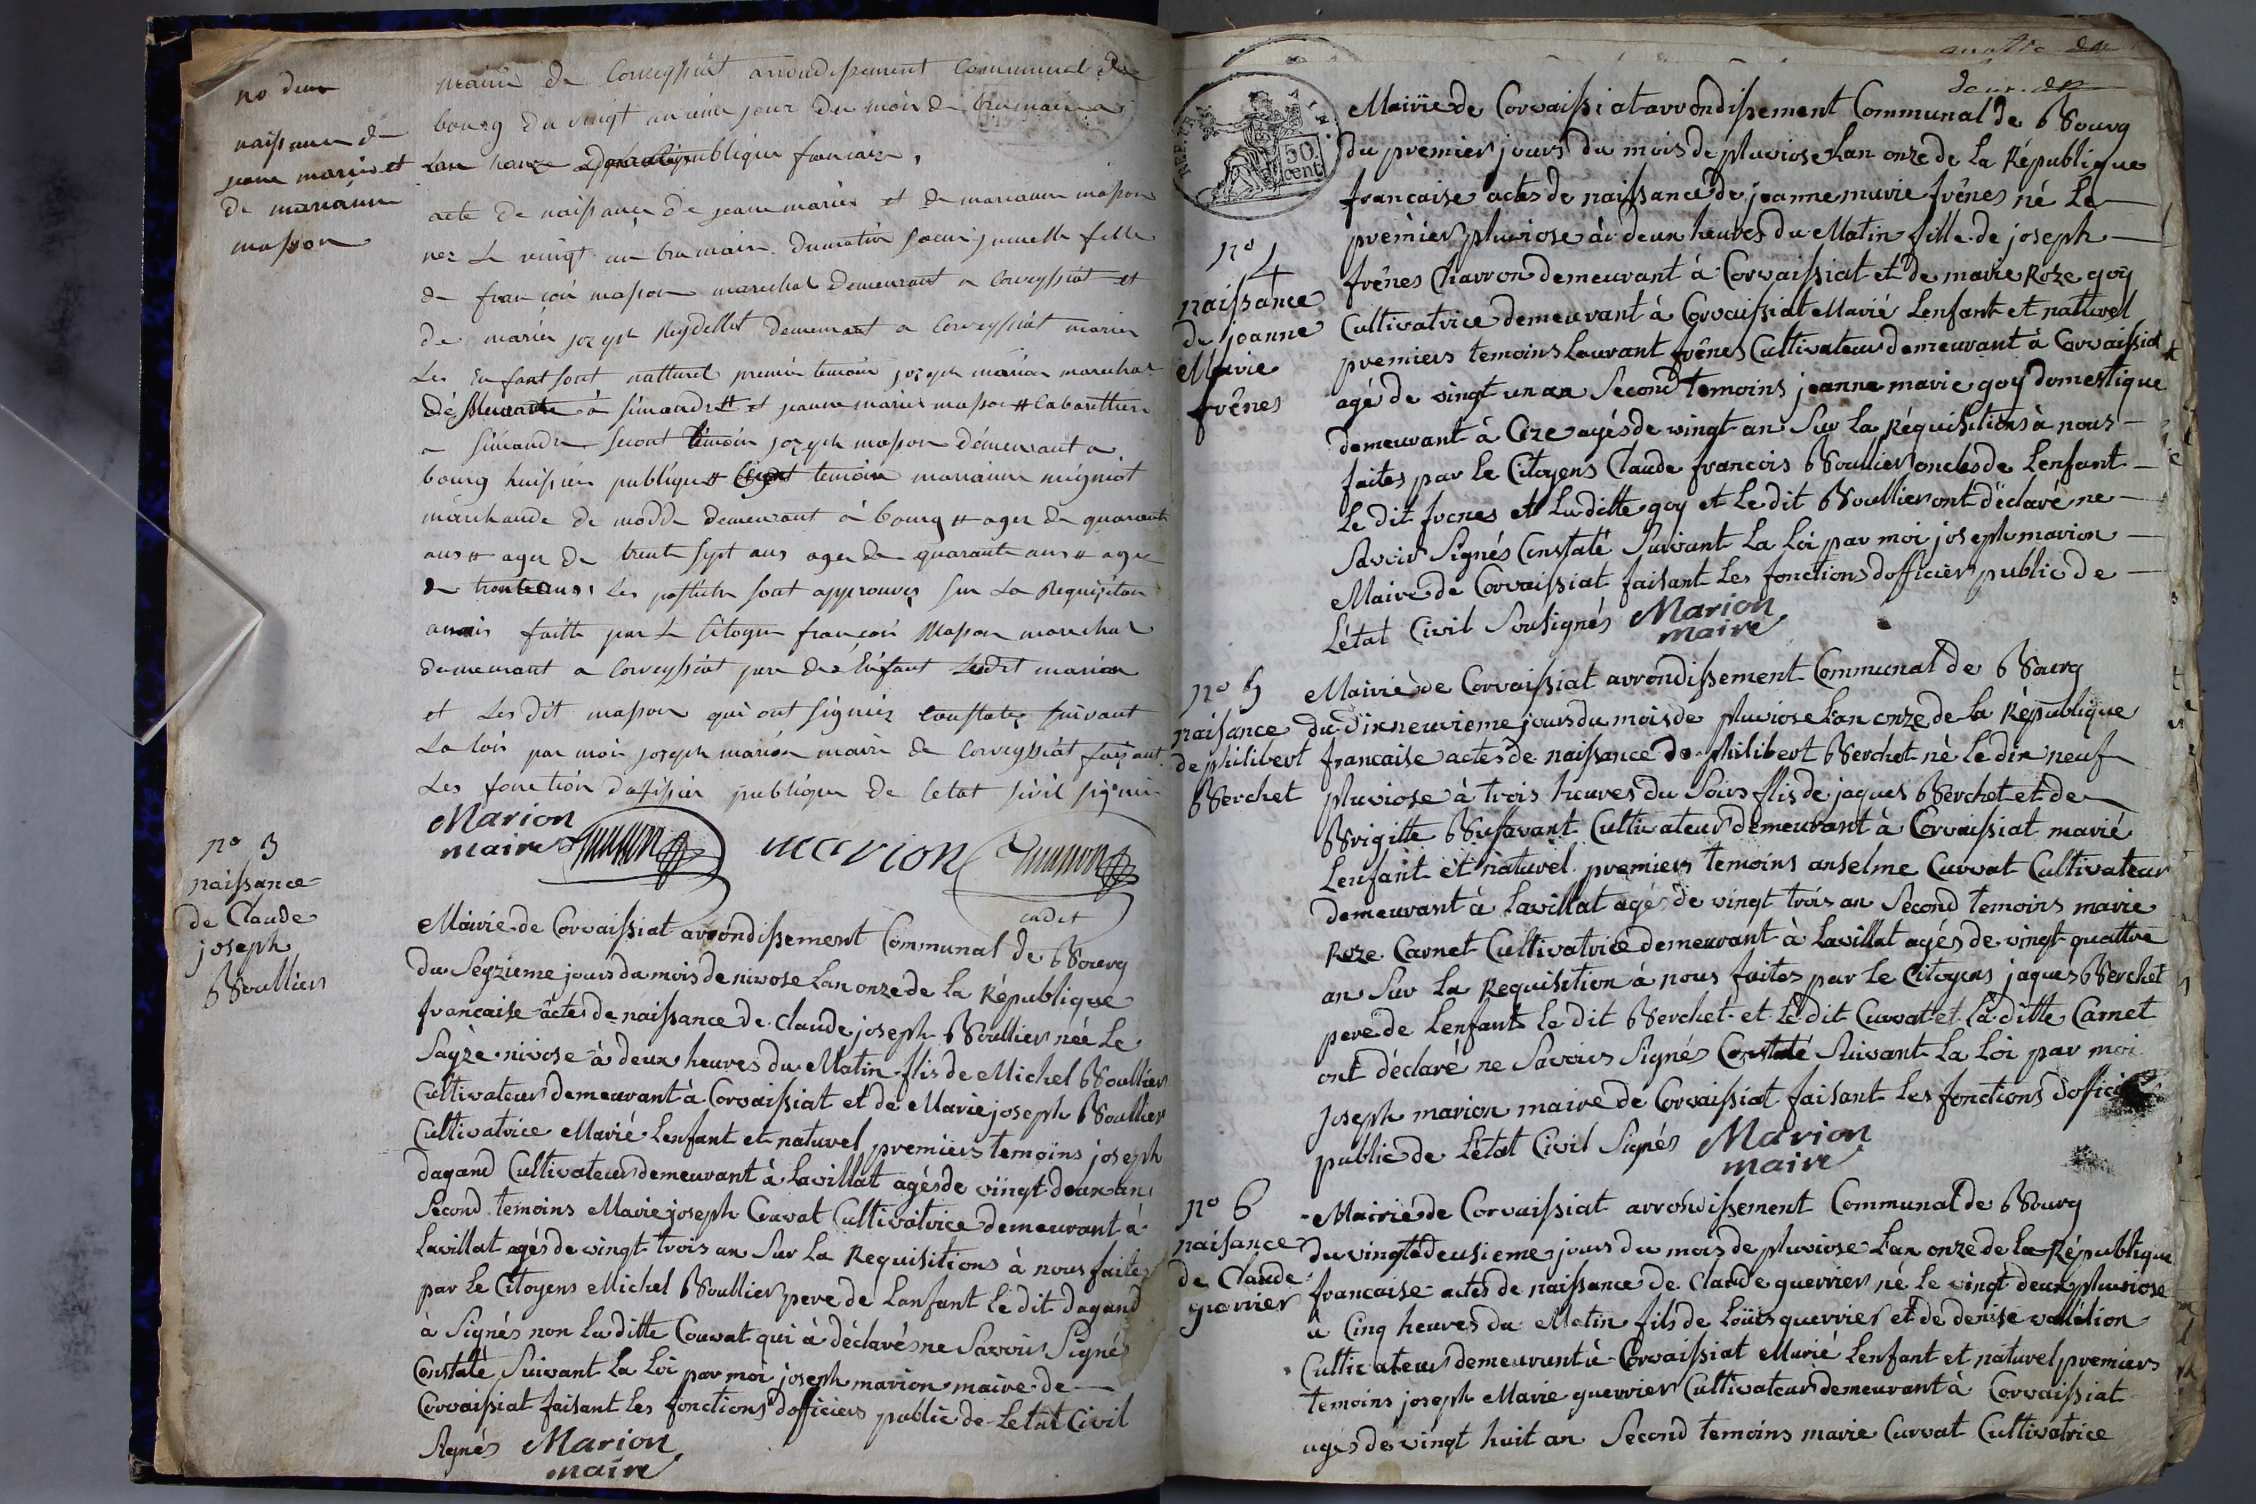 no deux
naissance de
jeane mariee et
de mariane
masson
mairie de Corveyssiat arrondissement Communal de
bourg du vingt un ieme jour du mois de brumaire
Lan honze republique francaise,
acte de naissance de jeane mariee et de mariane masson
nez Le vingt un brumaire du matin soeur jumelle fille
de francois masson marechal demeurant a Corveyssiat et
de mariee jozeph Reydellet demeurant a Corveyssiat mariez
Les Enfant sont natturel premier temoin jozeph marion marechal
à simandre # et jeane mariee masson # Cabarettiere
a simandre second témoin jozeph masson démeurant a
bourg huissier publique # temoin mariane migniot
marchande de modde demeurant à bourg # agee de quarante
ans # agez de trente sept ans agez de quarante ans # agee
de trente ans Les postitte sont approuvez sur La Requisition
a nous faitte par Le Citoyen francois Masson marechal
demeurant a Corveyssiat pere des Enfant Ledit marion
et Les dit masson qui ont signiez Constatez suivant
La loix par moi joseph marion maire de Corveyssiat faisant
Les fonction dofisier publique de letat sivil signiez
Marion
maire masson marion masson
cadet
no 3
naissance
de Claude
joseph
Boulliers
Mairie de Corvaissiat arrondissement Communal de Bourg
du Seyzieme jours du mois de nivose Lan onze de la République
francaise âctes de naissance de Claude joseph Boullier née Le
Sayze nivose à deux heures du Matin flis de Michel Boullier
Cultivateur demeurant à Corvaissiat et de Marie joseph Boullier
Cultivatrice Marié Lenfant et naturel premiers temoins joseph
dagand Cultivateur demeurant à Lavillat agés de vingt deux an
Second temoins Marie joseph Couvat Cultivatrice demeurant à
Lavillat agés de vingt trois an Sur La Requisitions à nous faites
par le Citoyens Michel Boullier pere de Lanfant Le dit dagand
à Signés non Ladite Couvat qui à déclarés ne Savoir Signés
Constaté Suivant La Loi par moi joseph marion maire de
Corvaissiat faisant Les fonctions dofficiers public de Letat Civil
Signés Marion
maire
REP. FRA.
50
cent
no 4
naissance
de joanne
Marie
frênes
Mairie de Corvaissiat arrondissement Communal de Bourg
du premier jours du mois de pluviose Lan onze de La République
française actes de naissance de joanne marie frênes né Le
premier pluviose à deux heures du Matin fille de joseph
frênes Charron demeurant à Corvaissiat et de marie Roze goy
Cultivatrice demeurant à Corvaissiat Marié Lenfant et naturel
premiers temoins Laurant frênes Cultivateur demeurant à Corvaissiat
agé de vingt un an Second temoins joanne marie goy domestique
demeurant à Cize agés de vingt an Sur La Réquisitions à nous
faites par Le Citoyens Claude francois Boullier oncles de Lenfant
Le dit frenes et Laditte goy et Le dit Boullier ont déclaré ne
Savoir Signés Constaté Suivant La Loi par moi joseph marion
Maire de Corvaissiat faisant Les fonctions dofficier public de
Létat Civil Sousignés Marion
maire
no 5
naissance
de philibert
Berchet
Mairie de Corvaissiat arrondissement Communal de Bourg
du dix neuvieme jours du mois de pluviose Lan onze de La République
francaise actes de naissance de philibert Berchet né Le dix neuf
pluviose à trois heures du Soirs flis de jaques Berchet et de
Brigitte Bussavant Cultivateur demeurant à Corvaissiat marié
Lenfant et naturel premiers temoins anselme Curvat Cultivateur
demeurant à Lavillat agés de vingt trois an Second temoins marie
Roze Carnet Cultivatrice demeurant à Lavillat agés de vingt quattre
an Sur La Requisition à nous faites par Le Citoyens jaques Berchet
pere de Lenfant Le dit Berchet et Le dit Curvat et La ditte Carnet
ont déclaré ne Savoirs Signés Constaté Suivant La Loi par moi
joseph marion maire de Corvaissiat faisant Les fonctions doffici
public de Létat Civil Signés Marion
maire
no 6
naissance
de Claude
guerrier
Mairie de Corvaissiat arrondissement Communal de Bourg
du vingtdeusieme jours du mois de pluviose Lan onze de La République
francaise actes de naissance de Claude guerrier né Le vingt deux pluviose
à Cinq heures du Matin fils de Loüis guerrier et de denise vallélion
Cultivateur demeurant à Corvaissiat Marié Lenfant et naturel premiers
temoins joseph Marie guerrier Cultivateur demeurant à Corvaissiat
agés de vingt huit an Second temoins marie Curvat Cultivatrice